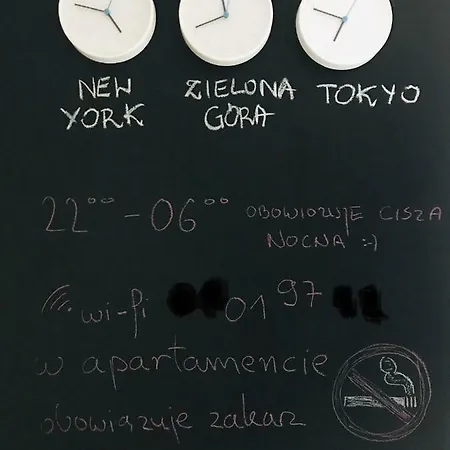 NEW YORK
ZIELONA GÓRA
TOKYO
22⁰⁰ - 06⁰⁰ OBOWIĄZUJE CISZA
NOCNA :-)
wi-fi 01 97
w apartamencie
obowiązuje zakaz